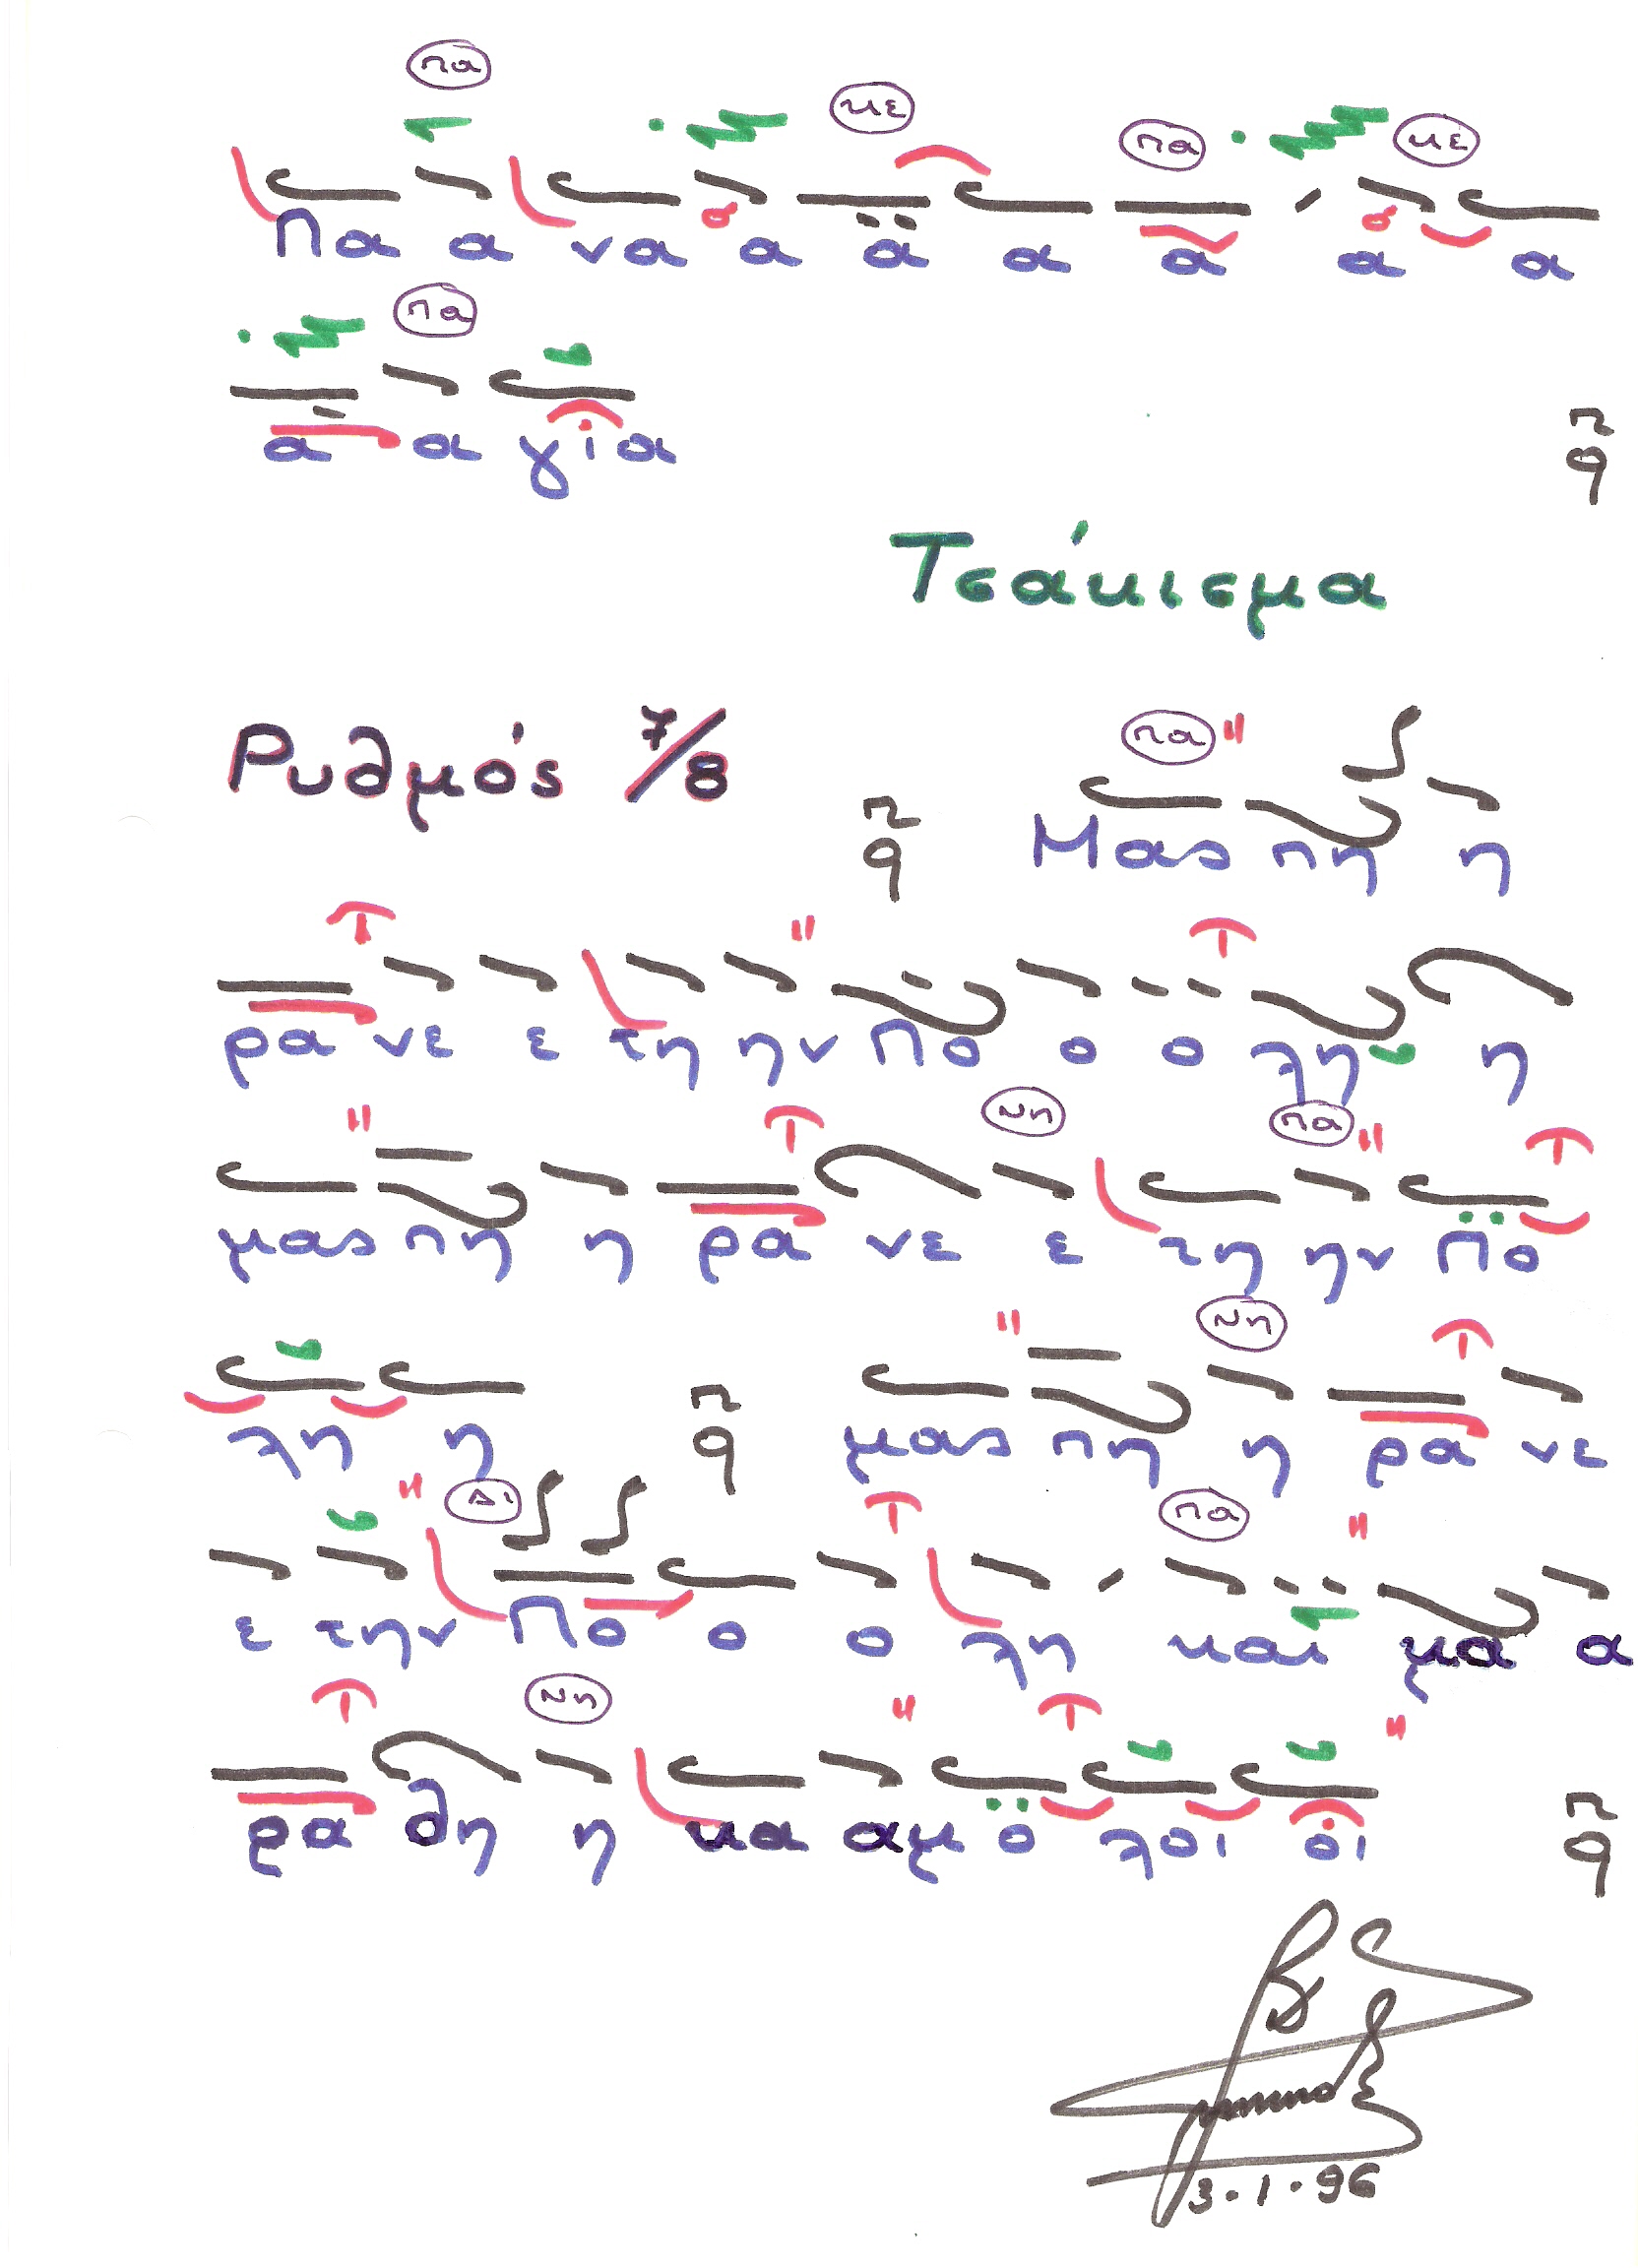 πα με πα με
Πα α να α α α α α α
πα
α α γία
π
q
Τσάκισμα
Ρυθμός 7/8
πα
π
q
Μας πη η
ρα νε ε τη ην Πο ο ο λη η
Νη πα
μας πη η ρα νε ε τη ην Πο
Νη
λη η
π
q
μας πη η ρα νε
Δι πα
ε την Πο ο ο λη και μα α
Νη
ρα δη η κα αμ ο λοι οι
π
q
3.1.96